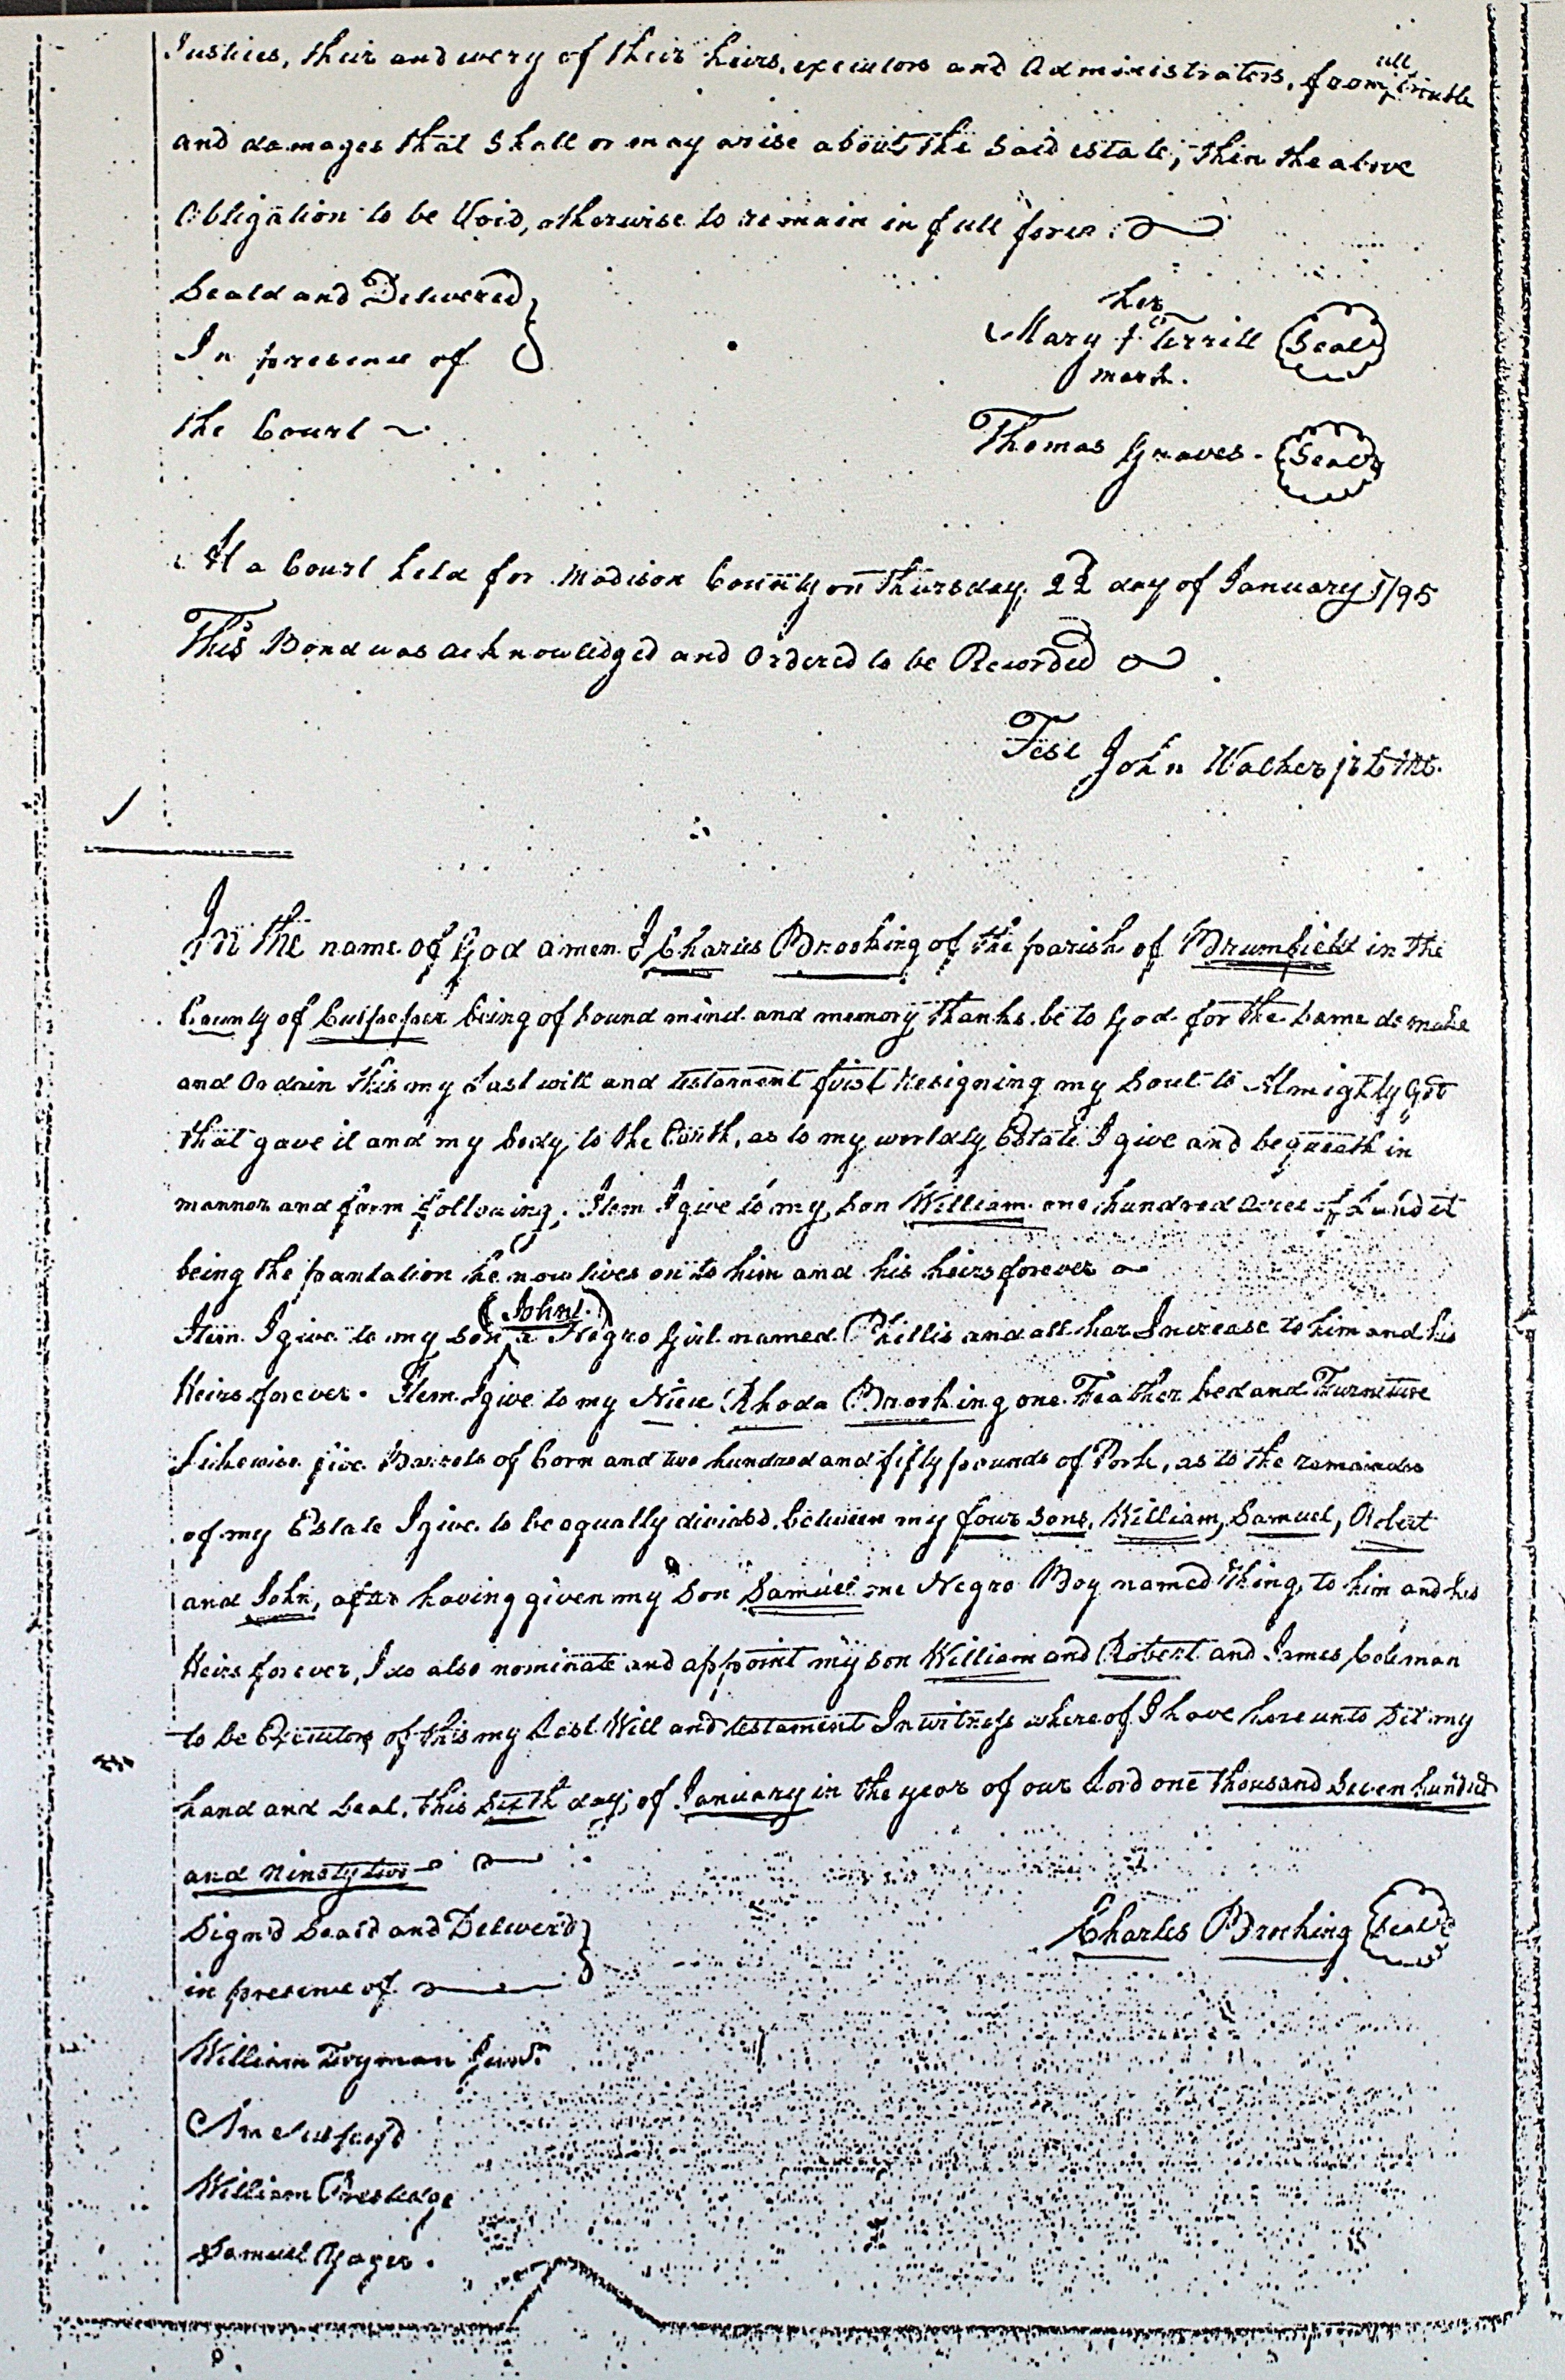 Justices, their and every of their heirs, executors and Administrators, from all trouble
and damages that Shall or may arise about the said estate, then the above
Obligation to be Void, otherwise to remain in full force.
Seald and Delivered
In presence of
the Court
her
Mary + Terrill Seal
mark.
Thomas Graves. Seal
At a Court held for Madison County on Thursday, 22d day of January 1795
This Bond was acknowledged and Ordered to be Recorded
Test John Walker jr
In the name of God amen. I Charles Brocking of the parish of Brumfield in the
County of Culpeper being of sound mind and memory thanks be to God for the same do make
and Ordain this my Last will and testament first Resigning my Soul to Almighty God
that gave it and my body to the Earth, as to my worldly Estate I give and bequeath in
manner and form following, Item I give to my son William one hundred acres of Land it
being the pantation he now lives on to him and his heirs forever
(John)
Item. I give to my son a Negro Girl named Phillis and all her Increase to him and his
Heirs forever. Item. I give to my Niece Rhoda Brocking one Feather bed and Furniture
Likewise five Barrels of Corn and two hundred and fifty pounds of Pork, as to the remainder
of my Estate I give to be equally divided between my four sons, William, Samuel, Robert
and John, after having given my Son Samuel one Negro Boy named to him and his
Heirs forever, I do also nominate and appoint my son William and Robert and James Coleman
to be Executors of this my Last Will and testament In witness whereof I have here unto set my
hand and Seal, this sixth day of January in the year of our Lord one thousand seven hundred
and Ninety two
Sign'd Seal'd and Deliver'd
in presence of
Charles Brocking Seal
William Twyman Junr.
William
Samuel Yager.